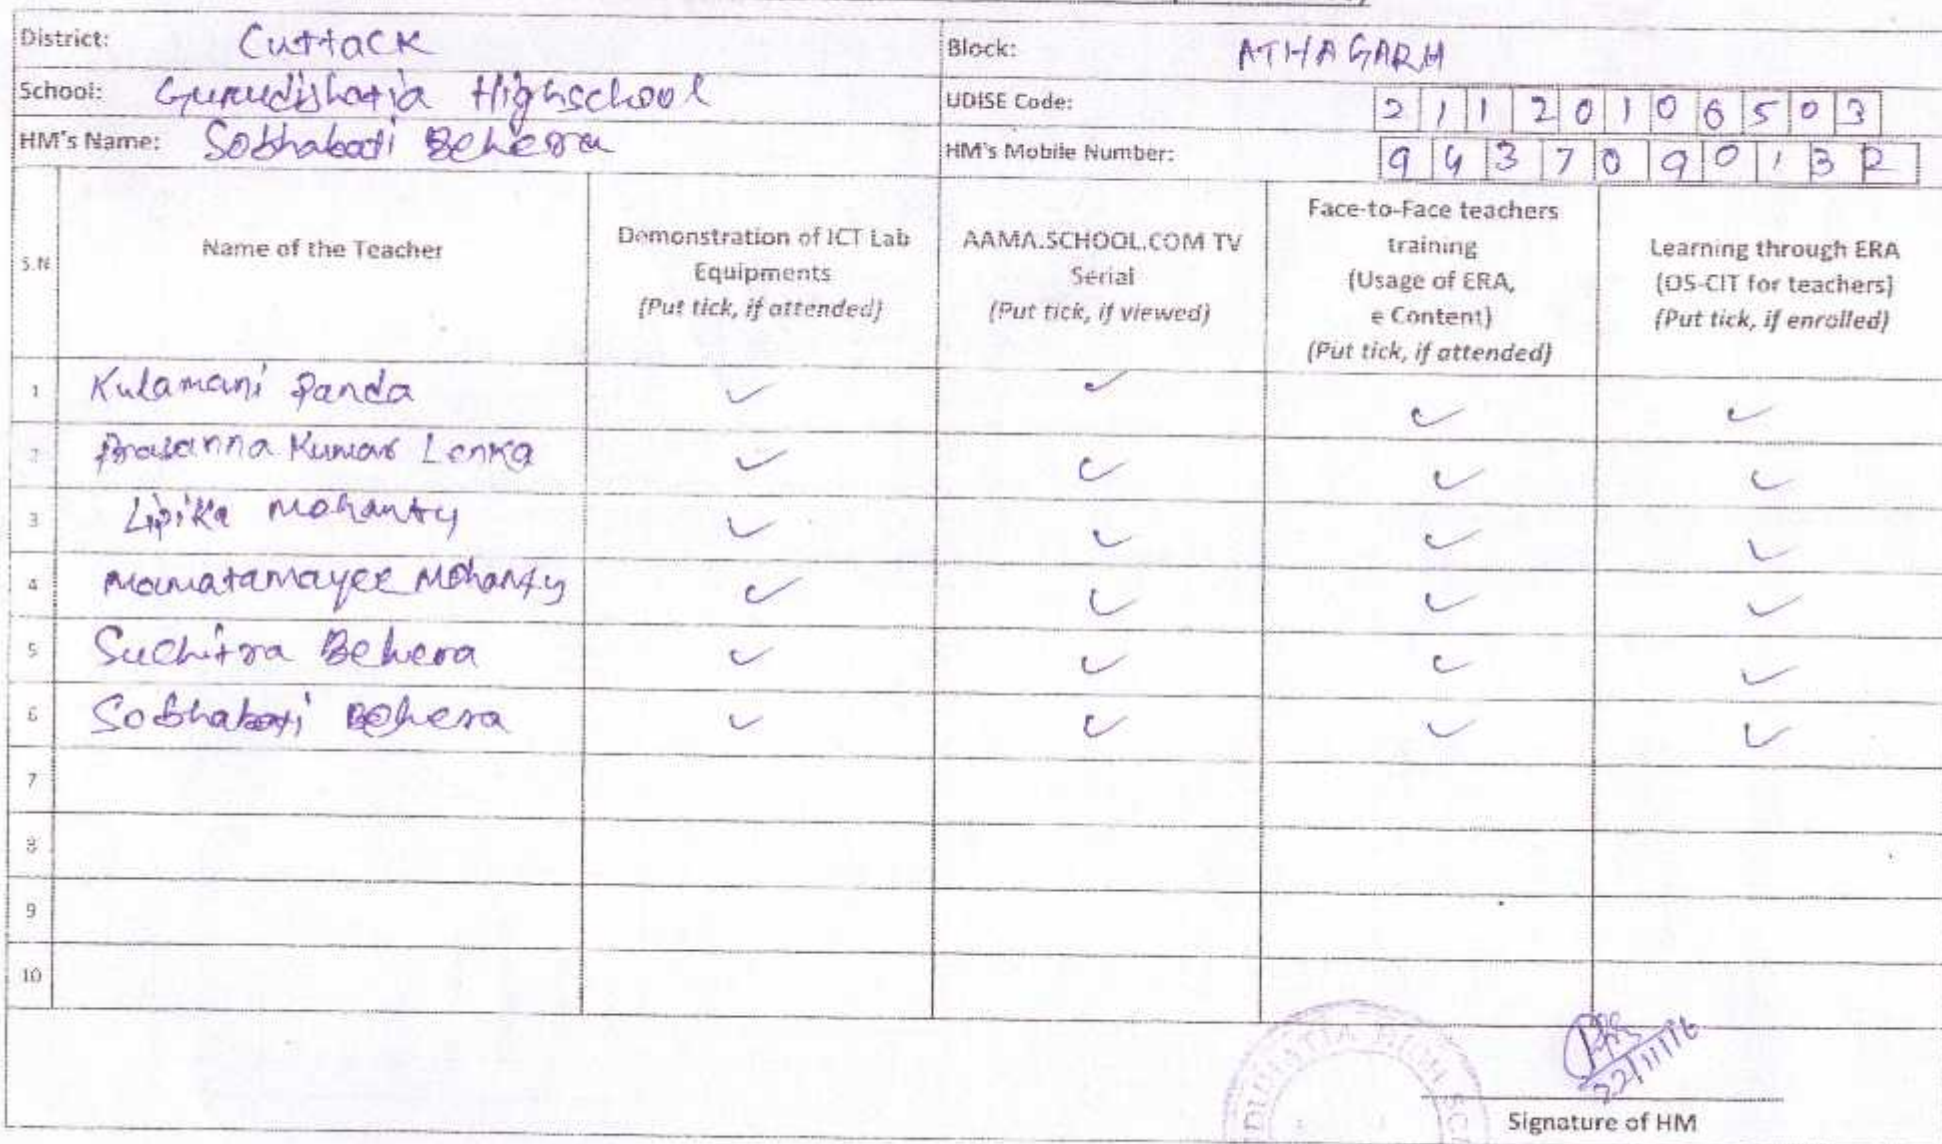 District: Cuttack Block: ATHAGARH
School: Gurudijhatia Highschool UDISE Code: 2 1 1 2 0 1 0 6 5 0 3
HM's Name: Sobhabati Behera HM's Mobile Number: 9 4 3 7 0 9 0 1 3 2
S.N Name of the Teacher Demonstration of ICT Lab Equipments (Put tick, if attended) AAMA.SCHOOL.COM TV Serial (Put tick, if viewed) Face-to-Face teachers training (Usage of ERA, e Content) (Put tick, if attended) Learning through ERA (OS-CIT for teachers) (Put tick, if enrolled)
1 Kulamani Panda ✓ ✓ ✓ ✓
2 Prasanna Kumar Lenka ✓ ✓ ✓ ✓
3 Lipika Mohanty ✓ ✓ ✓ ✓
4 Mamatamayee Mohanty ✓ ✓ ✓ ✓
5 Suchitra Behera ✓ ✓ ✓ ✓
6 Sobhabati Behera ✓ ✓ ✓ ✓
7
8
9
10
22/11/16
Signature of HM